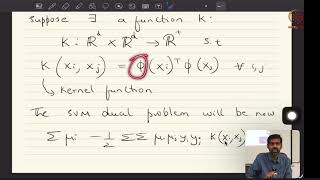 suppose ∃ a function K:
K: ℝᵈ × ℝᵈ → ℝ⁺ s.t
K (xᵢ, xⱼ) = ϕ(xᵢ)ᵀ ϕ(xⱼ) ∀ i,j
kernel function
The SVM dual problem will be now
Σ μᵢ - 1/2 ΣΣ μᵢ μⱼ yᵢ yⱼ K(xᵢ, xⱼ)